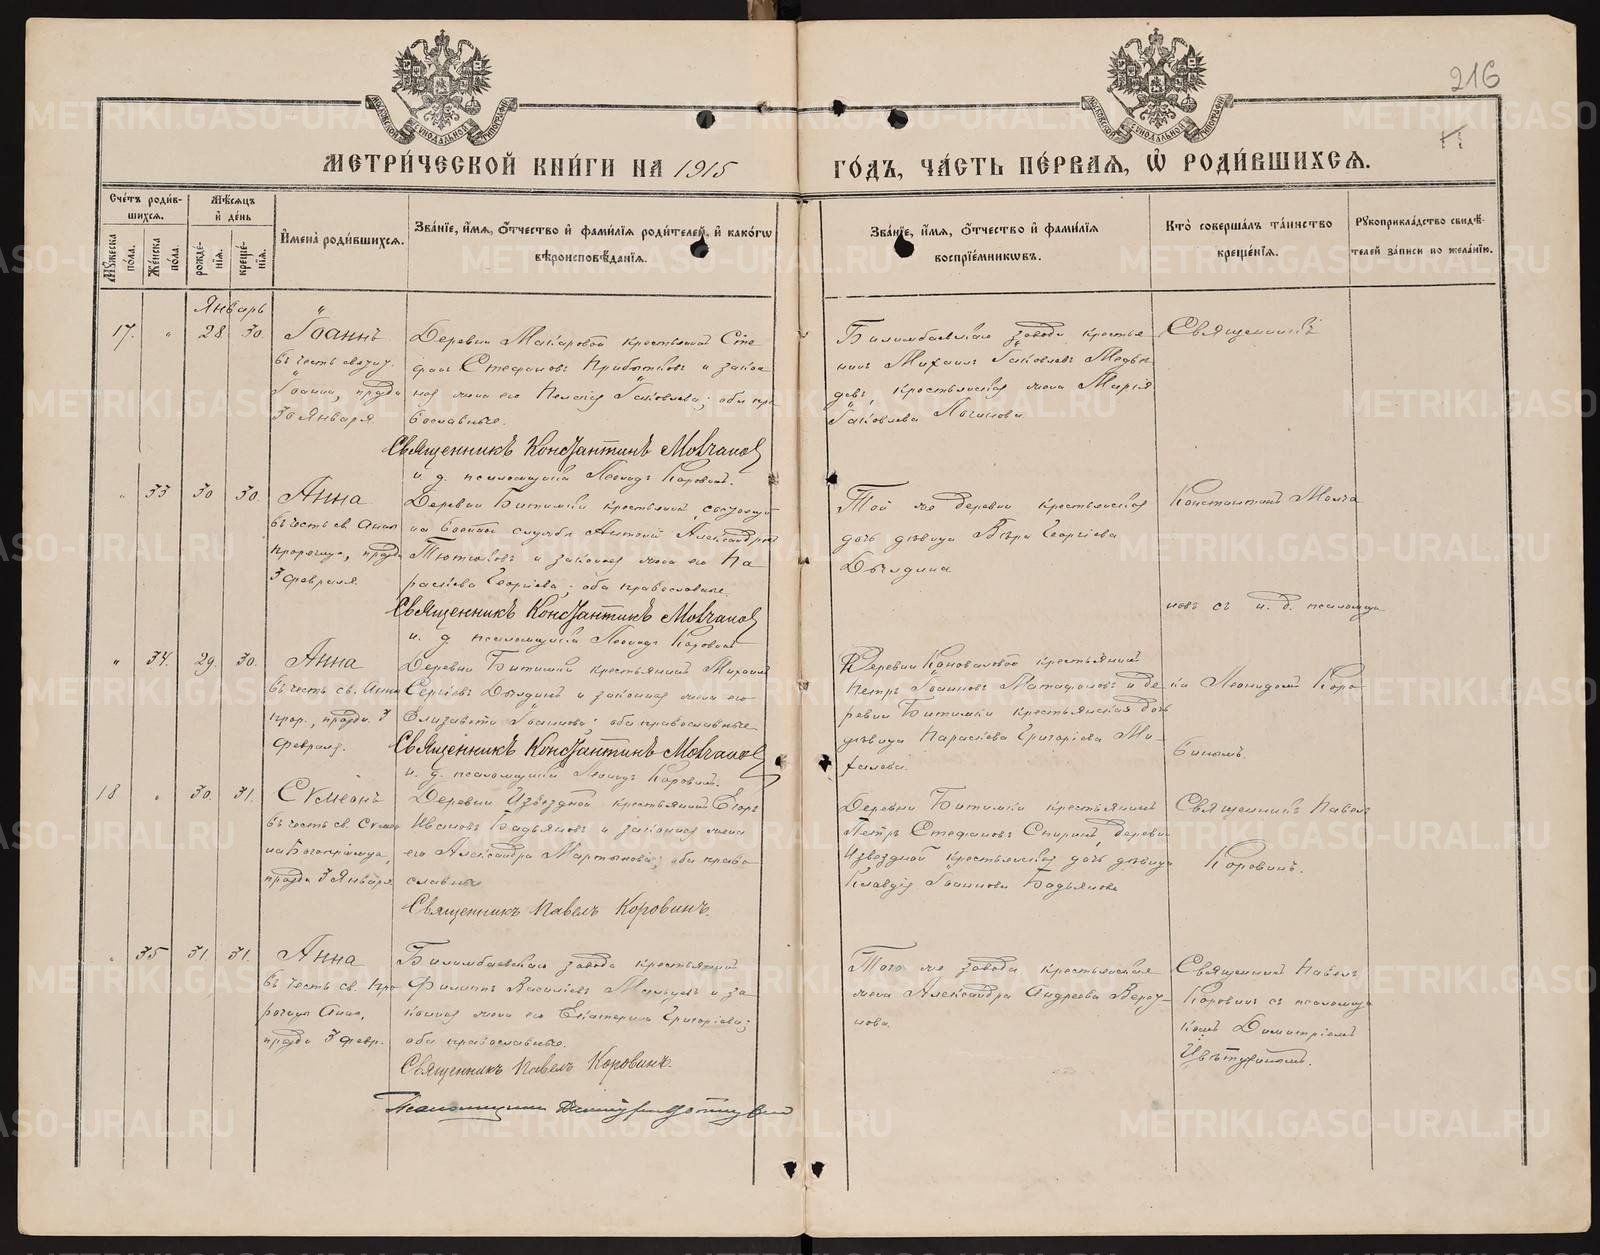 216
МЕТРИ́ЧЕСКОЙ КНИ́ГИ НА 1915 ГО́ДЪ, ЧА́СТЬ ПЕ́РВАЯ, Ѡ РОДИ́ВШИХСЯ.
Сче́тъ роди́в-
шихся.
Мѣ́сяцъ
и де́нь
Му́жеска по́ла.
Же́нска по́ла.
рожде́-
нія.
креще́-
нія.
Имена̀ роди́вшихся.
Зва́ніе, и́мя, о́тчество и фами́лія роди́телей, и како́гѡ
вѣроисповѣ́данія.
Зва́ніе, и́мя, о́тчество и фами́лія
воспріе́мникѡвъ.
Кто̀ соверша́лъ та́инство
креще́нія.
Рукоприкла́дство свидѣ́-
телей за́писи по жела́нію.
Январь
17. " 28 30.
Іоаннъ
въ честь
Іоанна, праздн.
30 Января.
Деревни Макаровой крестьянинъ Сте
фанъ Стефановъ Прибытковъ и закон
ная жена его Пелагія Іаковлева; оба пра
вославные.
Священникъ Константинъ Молчановъ
и. д. псаломщика Леонидъ Коровинъ.
Билимбаевскаго завода крестья
нинъ Михаилъ Іаковлевъ Медвѣ
девъ, крестьянская жена Марія
Іаковлева Логинова.
Священникъ
" 33 30 30.
Анна
въ честь св. Анны
пророчицы, праздн.
3 февраля.
Деревни Битимки крестьянинъ, состоящій
на военной службѣ Антоній Александровъ
Тютиковъ и законная жена его Па
раскева Георгіева; оба православные.
Священникъ Константинъ Молчановъ
и. д. псаломщика Леонидъ Коровинъ
Той же деревни крестьянская
дочь дѣвица Вѣра Георгіева
Дылдина
Константинъ Молча
новъ съ и. д. псаломщи
" 34. 29. 30.
Анна
въ честь св. Анны
прор., праздн. 3
Февраля.
Деревни Битимки крестьянинъ Михаилъ
Сергіевъ Дылдинъ и законная жена его
Елизавета Іоаннова; оба православные.
Священникъ Константинъ Молчановъ
и. д. псаломщика Леонидъ Коровинъ.
Деревни Коноваловой крестьянинъ
Петръ Іоанновъ Матафоновъ и де
ревни Битимки крестьянская дочь
дѣвица Параскева Григоріева Ми-
халева.
ка Леонидомъ Коро-
винымъ.
18 " 30. 31.
Сѵмеонъ
въ честь св. Сѵмео
на Богопріимца,
праздн. 3 Января
Деревни Извѣздной крестьянинъ Егоръ
Ивановъ Бадьяновъ и законная жена
его Александра Мартынова; оба право
славные
Священникъ Павелъ Коровинъ.
Деревни Битимки крестьянинъ
Петръ Стефановъ Спиринъ, деревни
Извѣздной крестьянская дочь дѣвица
Клавдія Іоаннова Бадьянова
Священникъ Павелъ
Коровинъ.
" 35 31. 31.
Анна
въ честь св. Про
рочицы Анны,
праздн. 3 февр.
Билимбаевскаго завода крестьянинъ
Филиппъ Василіевъ Мальцевъ и за
конная жена его Екатерина Григоріева;
оба православные.
Священникъ Павелъ Коровинъ.
Псаломщикъ
Того же завода крестьянская
жена Александра Андреева
нова.
Священникъ Павелъ
Коровинъ съ псаломщи
комъ Димитріемъ
Цвѣтухинымъ.
METRIKI.GASO-URAL.RU